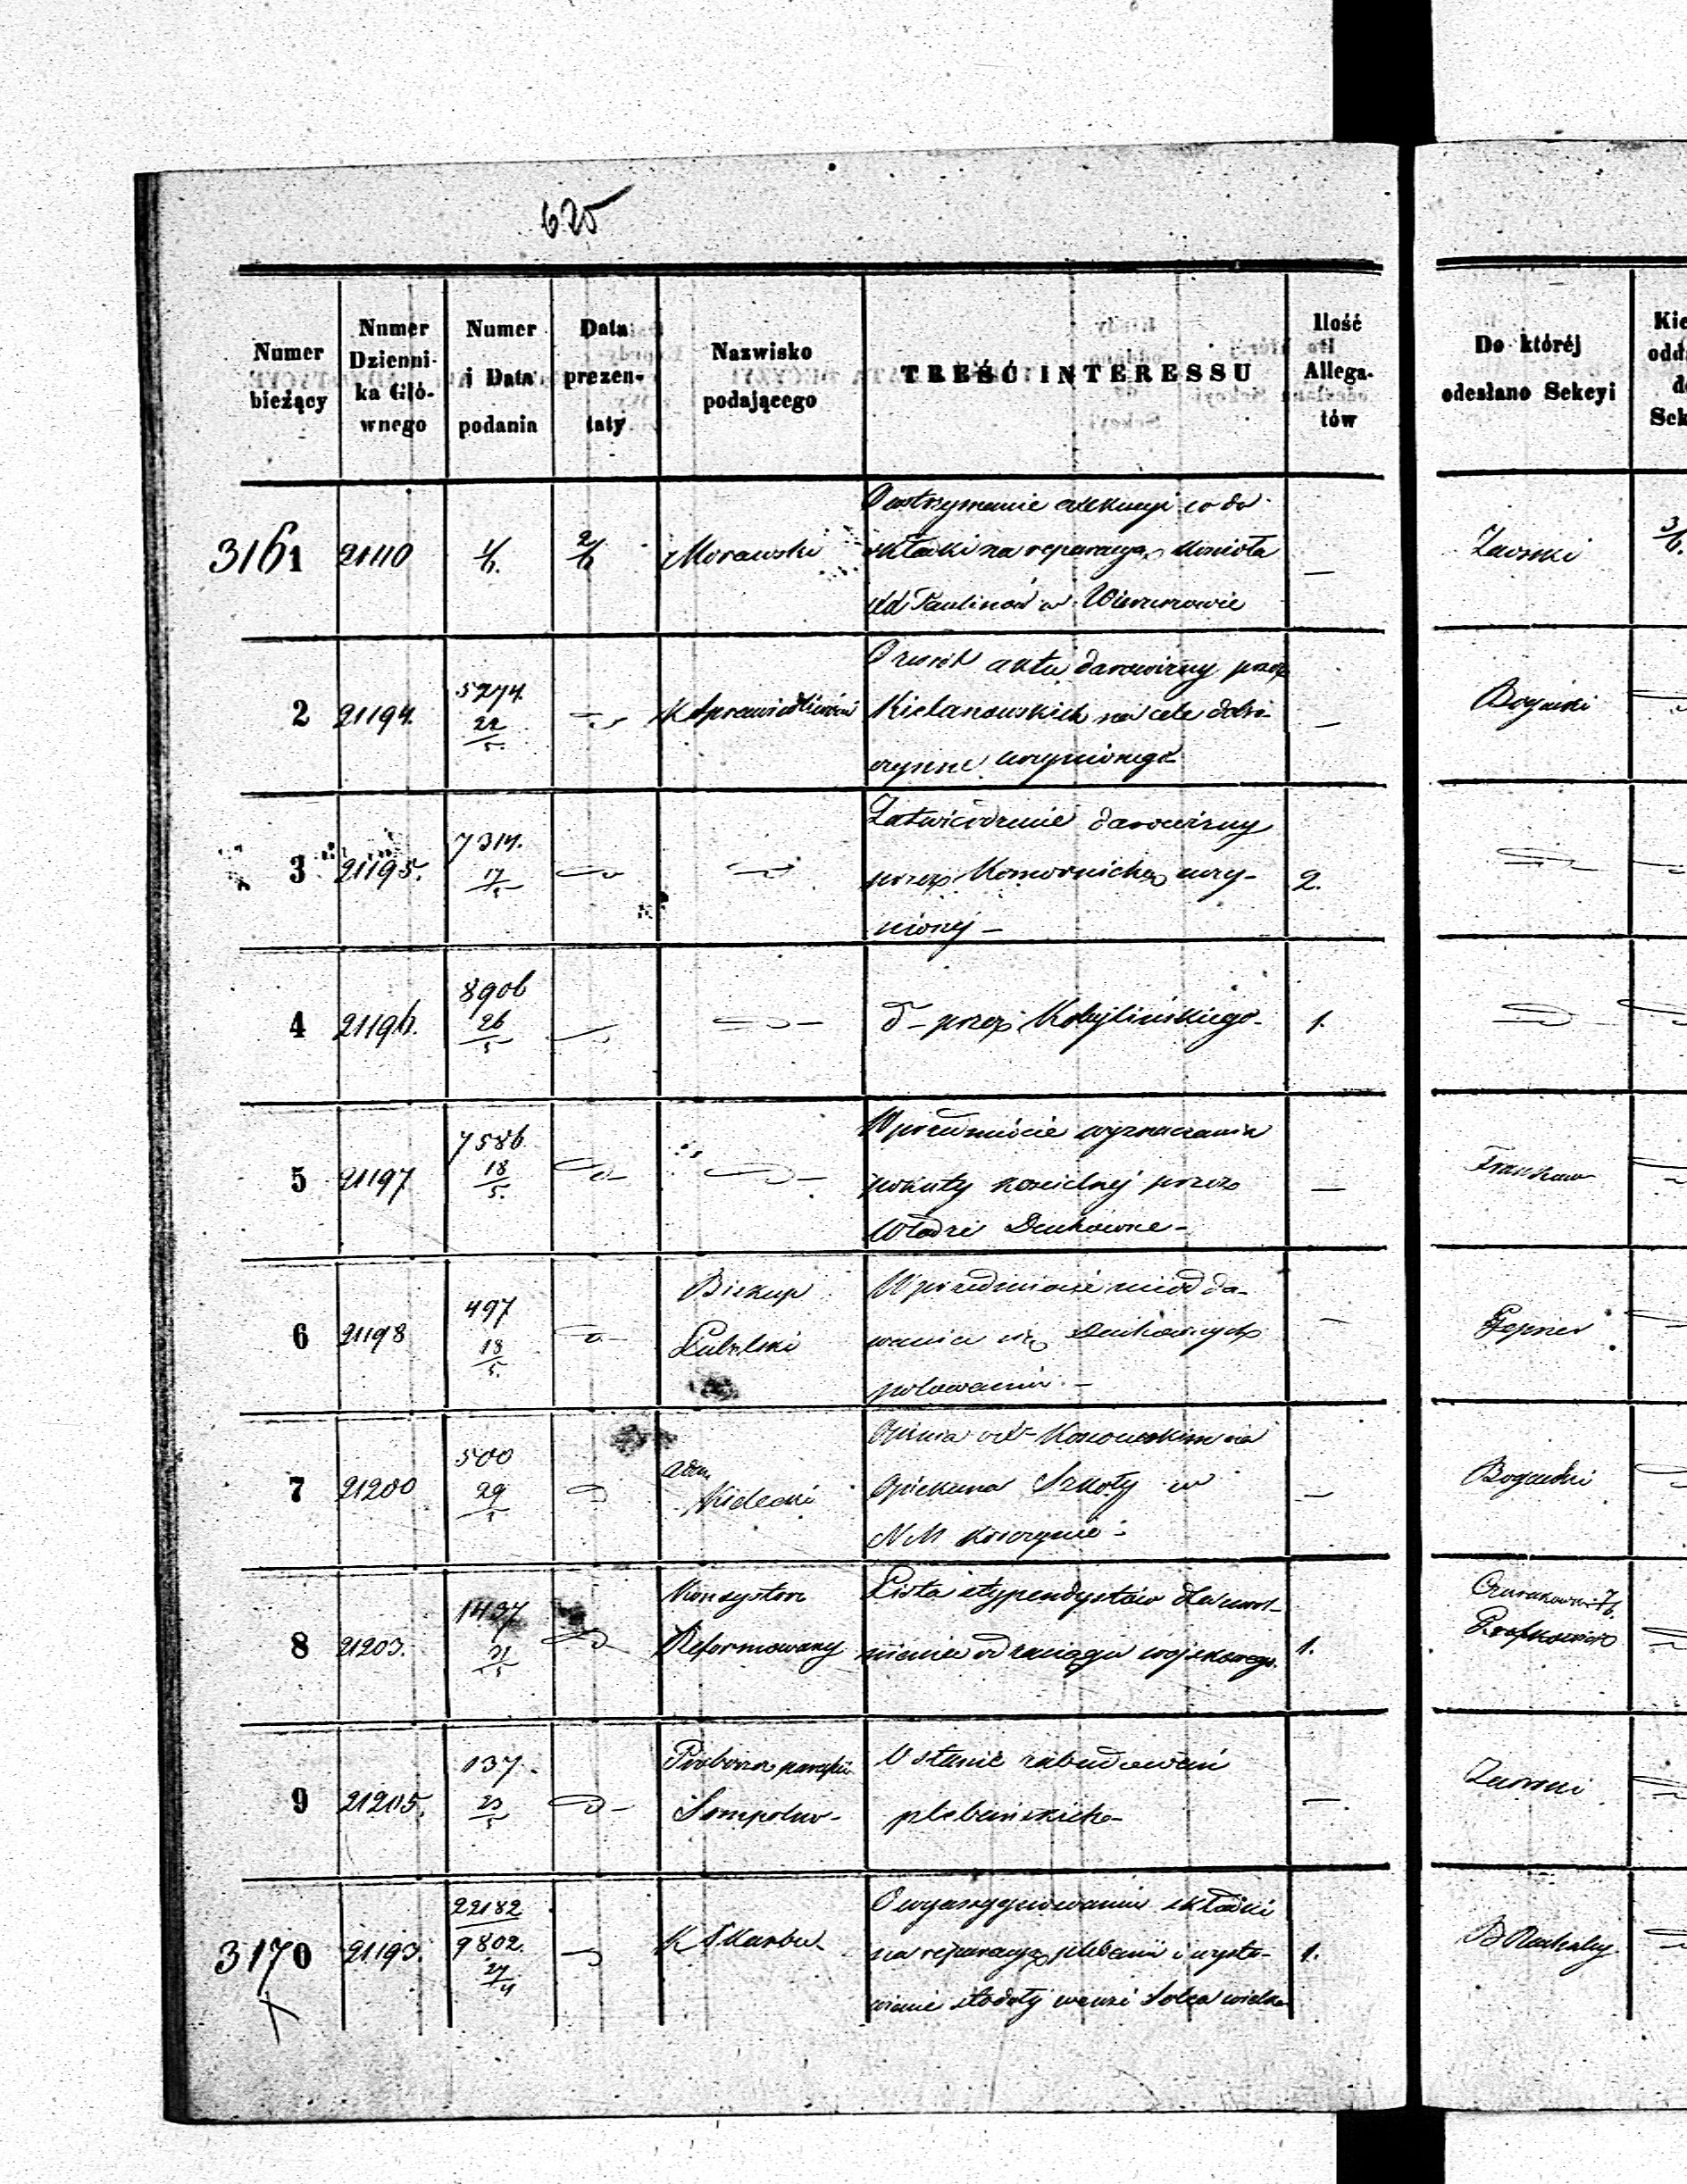 625
Numer bieżący
Numer Dzienni- ka Głó- wnego
Numer i Data podania
Data prezen- taty
Nazwisko podającego
TREŚĆ INTERESSU
Ilość Allega- tów
Do któréj odesłano Sekcyi
3161 21110 1/6. 2/6 Morawski
O wstrzymanie exekucyi co do
składki na reparacyą kościoła
Paulinów w Wieruszowie
—
3/6.
2 21194. 5274. 22/5. K Sprawiedliwości
akta darowizny przez
Kielanowskich na cele dobro-
czynne uczynionego
—
3 21195. 7314. 17/5
Zatwierdzenie darowizny
przez Komornicką uczy-
nionej —
2.
4 21196. 8906 26/5
d — przez Kobylińskiego —
1.
5 21197 7586 18/5.
W przedmiocie wyznaczania
pokuty kościelnej przez
Władze Duchowne —
—
6 21198 497 18/5. Biskup
Lubelski
W przedmiocie nieodda-
wania się Duchownych
polowaniu. —
—
Hepner
7 21200 500 29/5
Adm
Kielecki
Opinia Kossowskim na
Opiekuna Szkoły w
NM Korczynie —
—
8 21203. 1437 31/5
Konsystorz
Reformowany
Lista stypendystów dla uwol-
nienia od zaciągu wojskowego.
1.
9 21205. 137. 23/5
Proboszcz parafii
Sompolno —
O stanie zabudowań
plebańskich —
—
3170 21193. 22182
9802. 27/4
K Skarbu
O wyasygnowanie składki
na reparacyą plebanii i wysta-
wienie stodoły we wsi Solca wielka
1.